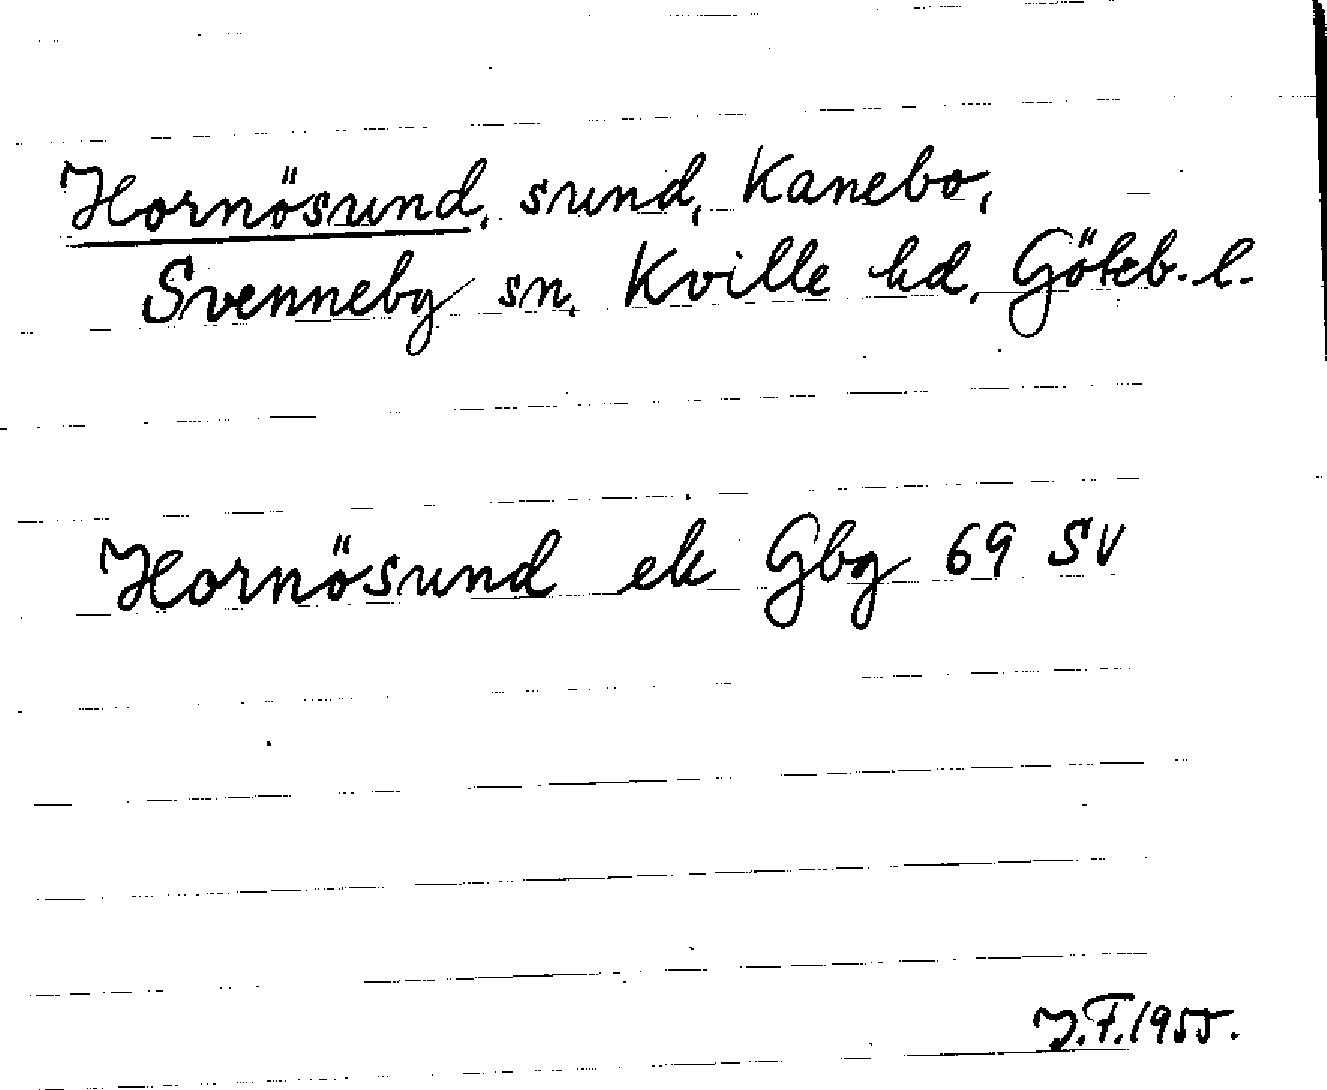 Hornösund, sund, Kanebo,
Svenneby sn, Kville hd, Göteb. l.
Hornösund ek Gbg 69 SV
J.F. 1955.